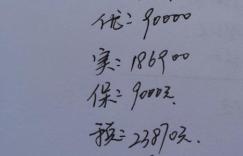 优=90000
实=186900
保=9000元.
预=23870元.